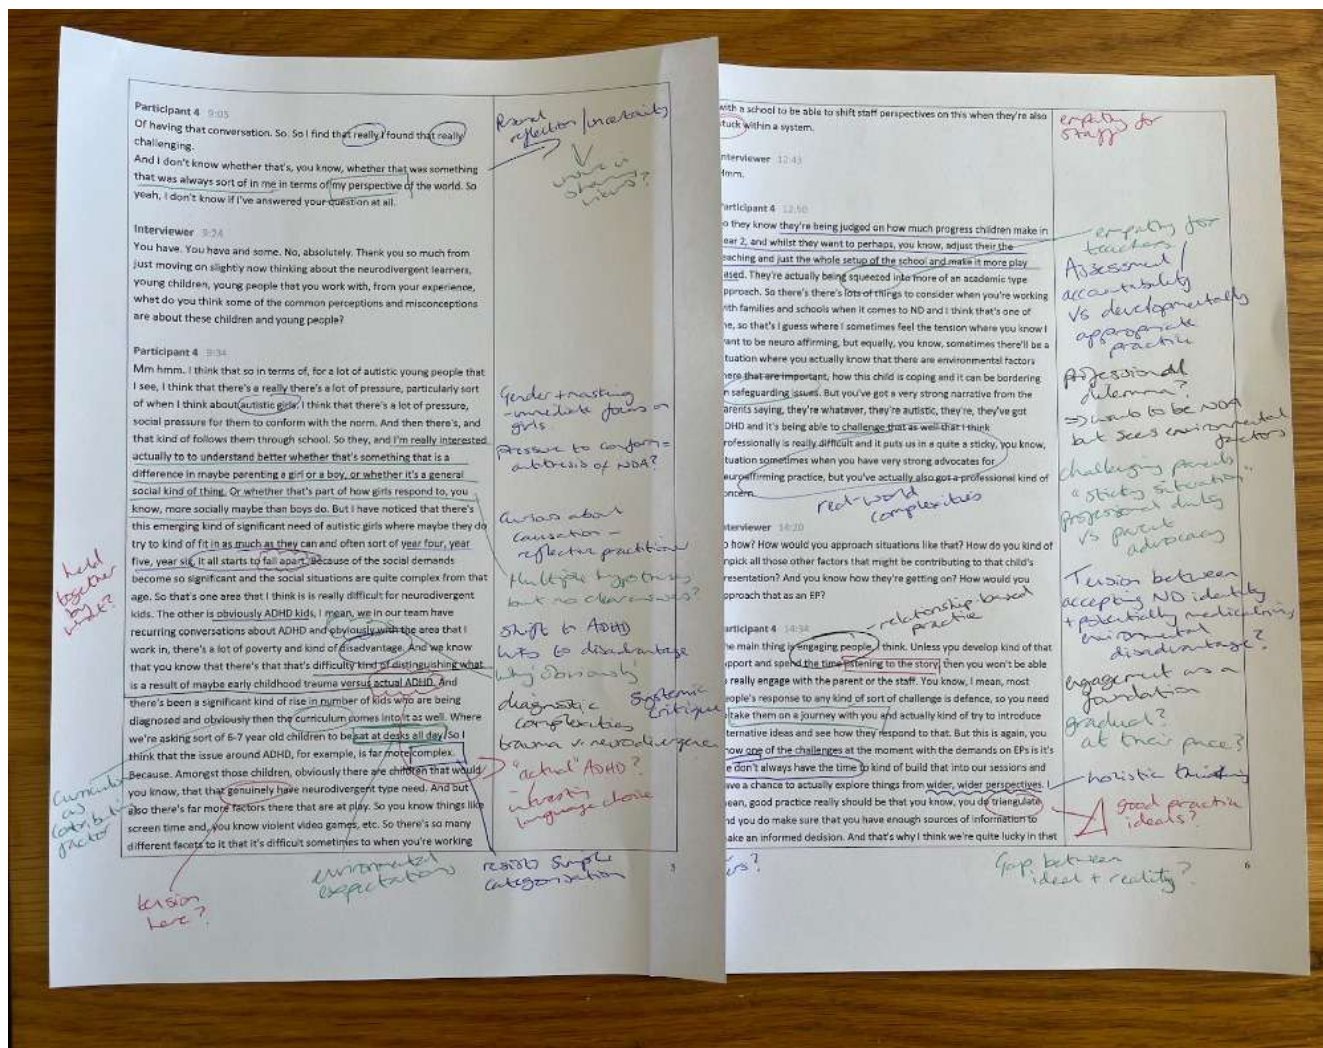 Participant 4 9:05
Of having that conversation. So. So I find that really I found that really
challenging.
And I don't know whether that's, you know, whether that was something
that was always sort of in me in terms of my perspective of the world. So
yeah, I don't know if I've answered your question at all.
Interviewer 9:24
You have. You have and some. No, absolutely. Thank you so much from
just moving on slightly now thinking about the neurodivergent learners,
young children, young people that you work with, from your experience,
what do you think some of the common perceptions and misconceptions
are about these children and young people?
Participant 4 9:34
Mm hmm. I think that so in terms of, for a lot of autistic young people that
I see, I think that there's a really there's a lot of pressure, particularly sort
of when I think about autistic girls. I think that there's a lot of pressure,
social pressure for them to conform with the norm. And then there's, and
that kind of follows them through school. So they, and I'm really interested
actually to to understand better whether that's something that is a
difference in maybe parenting a girl or a boy, or whether it's a general
social kind of thing. Or whether that's part of how girls respond to, you
know, more socially maybe than boys do. But I have noticed that there's
this emerging kind of significant need of autistic girls where maybe they do
try to kind of fit in as much as they can and often sort of year four, year
five, year six, it all starts to fall apart. Because of the social demands
become so significant and the social situations are quite complex from that
age. So that's one area that I think is is really difficult for neurodivergent
kids. The other is obviously ADHD kids, I mean, we in our team have
recurring conversations about ADHD and obviously with the area that I
work in, there's a lot of poverty and kind of disadvantage. And we know
that you know that there's that that's difficulty kind of distinguishing what
is a result of maybe early childhood trauma versus actual ADHD. And
there's been a significant kind of rise in number of kids who are being
diagnosed and obviously then the curriculum comes into it as well. Where
we're asking sort of 6-7 year old children to be sat at desks all day. So I
think that the issue around ADHD, for example, is far more complex.
Because. Amongst those children, obviously there are children that would
you know, that that genuinely have neurodivergent type need. And but
also there's far more factors there that are at play. So you know things like
screen time and, you know violent video games, etc. So there's so many
different facets to it that it's difficult sometimes to when you're working
reflection/uncertainty
Gender + masking
- immediate focus on
girls
pressure to conform =
antithesis of NDA?
Curious about
causation -
reflective practitioner
Multiple hypotheses
but no clear answers?
shift to ADHD
links to disadvantage
why 'obviously'
diagnostic
complexities
Systemic
critique
trauma vs neurodivergence
"actual" ADHD?
- interesting
language choice
resists simple
categorisation
environmental
expectations
tension
here?
held
together
by
what?
Curriculum
as
contributing
factor
5
with a school to be able to shift staff perspectives on this when they're also
stuck within a system.
Interviewer 12:43
Hmm.
Participant 4 12:50
o they know they're being judged on how much progress children make in
ear 2, and whilst they want to perhaps, you know, adjust their the
eaching and just the whole setup of the school and make it more play
ased. They're actually being squeezed into more of an academic type
pproach. So there's there's lots of things to consider when you're working
ith families and schools when it comes to ND and I think that's one of
ne, so that's I guess where I sometimes feel the tension where you know I
ant to be neuro affirming, but equally, you know, sometimes there'll be a
tuation where you actually know that there are environmental factors
here that are important, how this child is coping and it can be bordering
n safeguarding issues. But you've got a very strong narrative from the
arents saying, they're whatever, they're autistic, they're, they've got
DHD and it's being able to challenge that as well that I think
rofessionally is really difficult and it puts us in a quite a sticky, you know,
tuation sometimes when you have very strong advocates for
euroaffirming practice, but you've actually also got a professional kind of
oncern.
real-world
complexities
nterviewer 14:20
o how? How would you approach situations like that? How do you kind of
npick all those other factors that might be contributing to that child's
resentation? And you know how they're getting on? How would you
pproach that as an EP?
relationship-based
practice
articipant 4 14:34
he main thing is engaging people, I think. Unless you develop kind of that
pport and spend the time listening to the story, then you won't be able
o really engage with the parent or the staff. You know, I mean, most
eople's response to any kind of sort of challenge is defence, so you need
take them on a journey with you and actually kind of try to introduce
ternative ideas and see how they respond to that. But this is again, you
now one of the challenges at the moment with the demands on EPs is it's
e don't always have the time to kind of build that into our sessions and
ave a chance to actually explore things from wider, wider perspectives. I
ean, good practice really should be that you know, you do triangulate
nd you do make sure that you have enough sources of information to
ake an informed decision. And that's why I think we're quite lucky in that
empathy for
staff
empathy for
teachers
Assessment/
accountability
vs developmentally
appropriate
practice
professional
dilemma?
⇒ wants to be NDA
but sees environmental
factors
challenging parents
"sticky situation"
professional duty
vs parent
advocacy
Tension between
accepting ND identity
+ potentially medicalising
environmental
disadvantage?
engagement as a
foundation
gradual?
at their pace?
holistic thinking
good practice
ideals?
Gap between
ideal + reality?
6